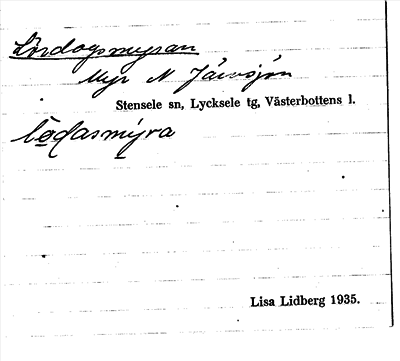 Lördagsmyran
Myr N Järvsjön
Stensele sn, Lycksele tg, Västerbottens l.
lo̲dasmy̲ra
Lisa Lidberg 1935.